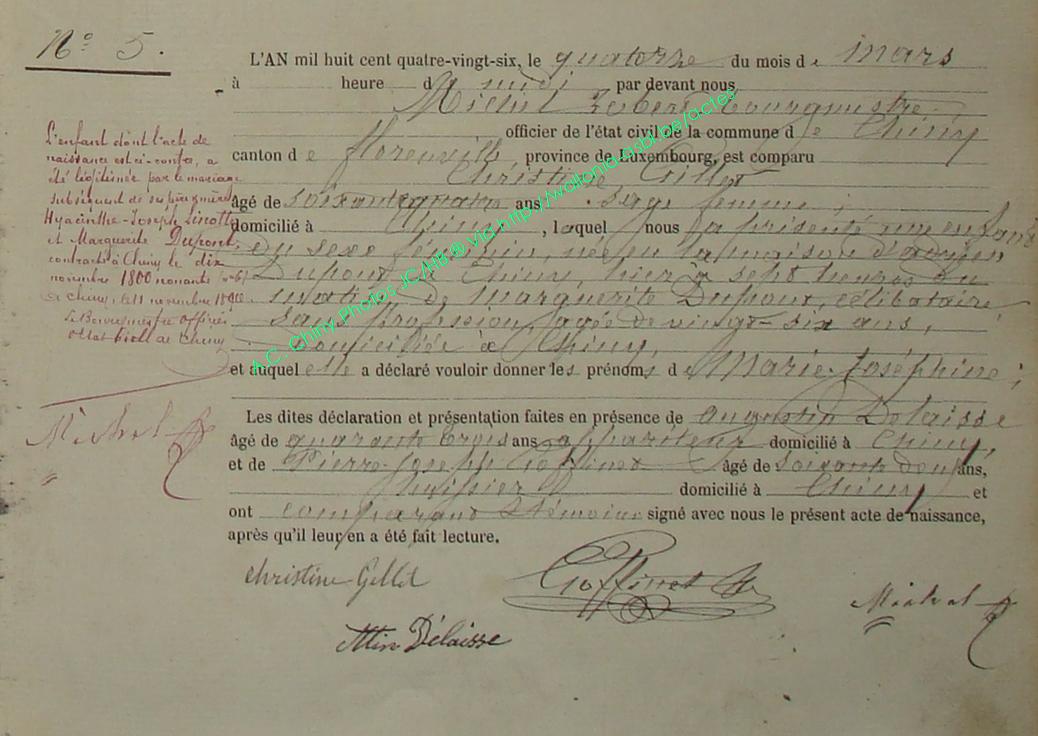 N° 5.
L'AN mil huit cent quatre-vingt-six, le quatorze du mois de mars
à heure d midi par devant nous
Michel bourgmestre
officier de l'état civil de la commune de Chiny
canton de florenville, province de Luxembourg, est comparu
Christine Gillet
âgé de soixante quatre ans sage femme,
domicilié à Chiny, laquel nous a présenté une enfant
du sexe féminin née en la maison d'adrien
Dupont à Chiny, hier à sept heures du
matin de Marguerite Dupont, célibataire,
sans profession, agée de vingt-six ans,
domiciliée à Chiny,
et auquel elle a déclaré vouloir donner les prénoms de Marie-Joséphine;
Les dites déclaration et présentation faites en présence de augustin Delaisse
âgé de quarante trois ans appariteur domicilié à Chiny,
et de Pierre-Joseph Goffinet âgé de soixante deux ans,
huissier domicilié à Chiny et
ont comparant & témoins signé avec nous le présent acte de naissance,
après qu'il leur en a été fait lecture.
Christine Gillet
Goffinet
Michel
Attin Délaisse
L'enfant dont l'acte de
naissance est ci-contre, a
été légitimée par le mariage
subséquent de ses père & mère
Hyacinthe-Joseph Linotte
et Marguerite Dupont,
contracté à Chiny le dix
novembre 1800 nonante
à Chiny, le 11 novembre 1890.
Le Bourgmestre officier
état civil de Chiny
Michel
A.C. Chiny Photos JC/HB ® Via http://wallonia-asbl.be/actes